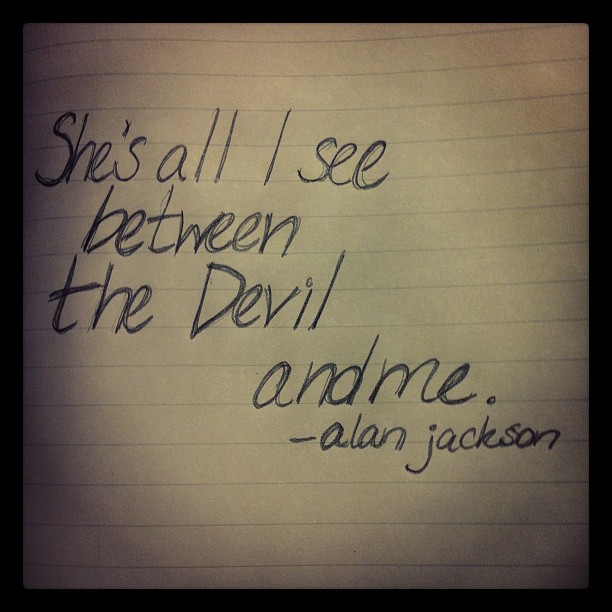 She's all I see
between
the Devil
and me.
-alan jackson